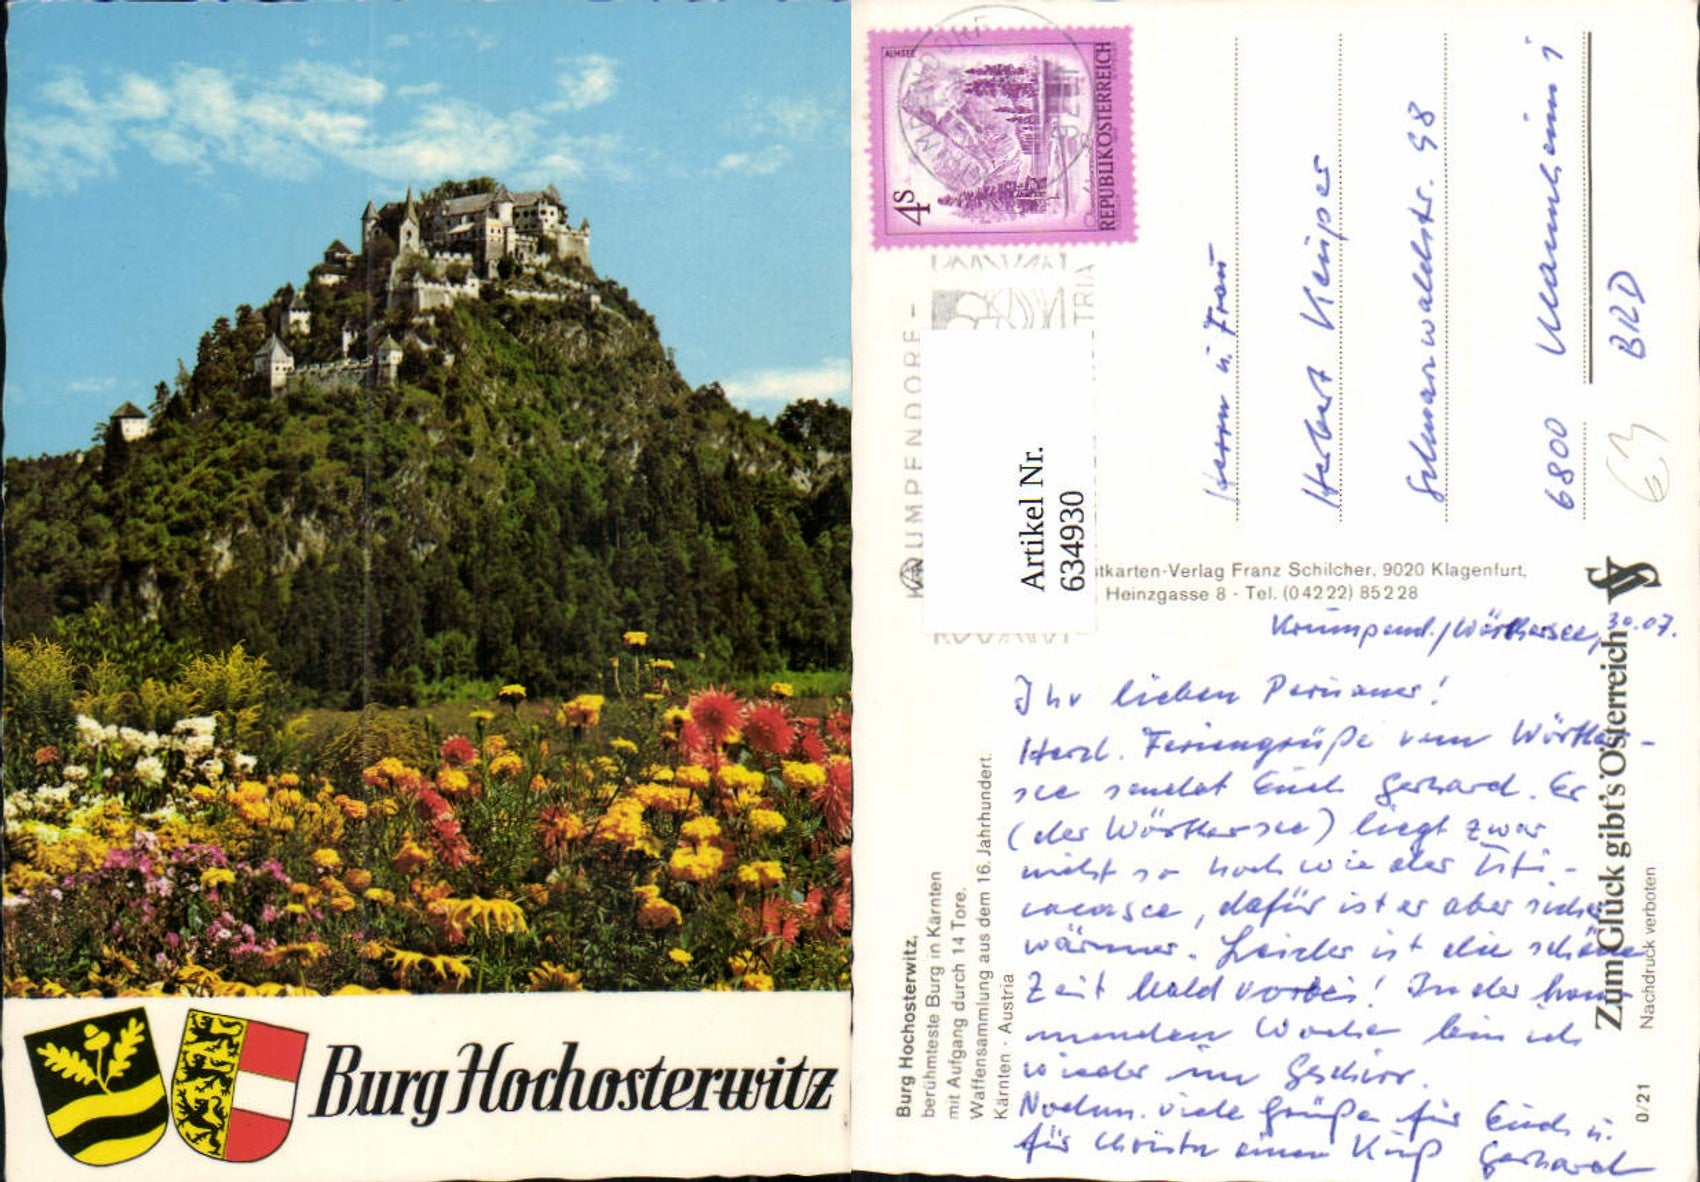 Burg Hochosterwitz
ALMSEE
4S
REPUBLIK ÖSTERREICH
KRUMPENDORF
TRIA
Artikel Nr.
634930
Herrn u. Frau
Herbert
6800 Mannheim 1
BRD
63
stkarten-Verlag Franz Schilcher, 9020 Klagenfurt,
Heinzgasse 8 - Tel. (04222) 85228
Burg Hochosterwitz,
berühmteste Burg in Kärnten
mit Aufgang durch 14 Tore.
Waffensammlung aus dem 16. Jahrhundert.
Kärnten - Austria
Krumpend./Wörthersee, 30.07.
Ihr lieben
Herzl. Feriengrüße vom Wörther-
see sendet Euch Gerhard. Er
(der Wörthersee) liegt zwar
nicht so hoch wie der Titi-
see, dafür ist er aber sicher
wärmer. Leider ist die schöne
Zeit bald vorbei! In der kom-
menden Woche bin ich
wieder im Geschirr.
Nochm. viele Grüße für Euch u.
für Christa einen Kuß Gerhard
Zum Glück gibt's Österreich
0/21
Nachdruck verboten